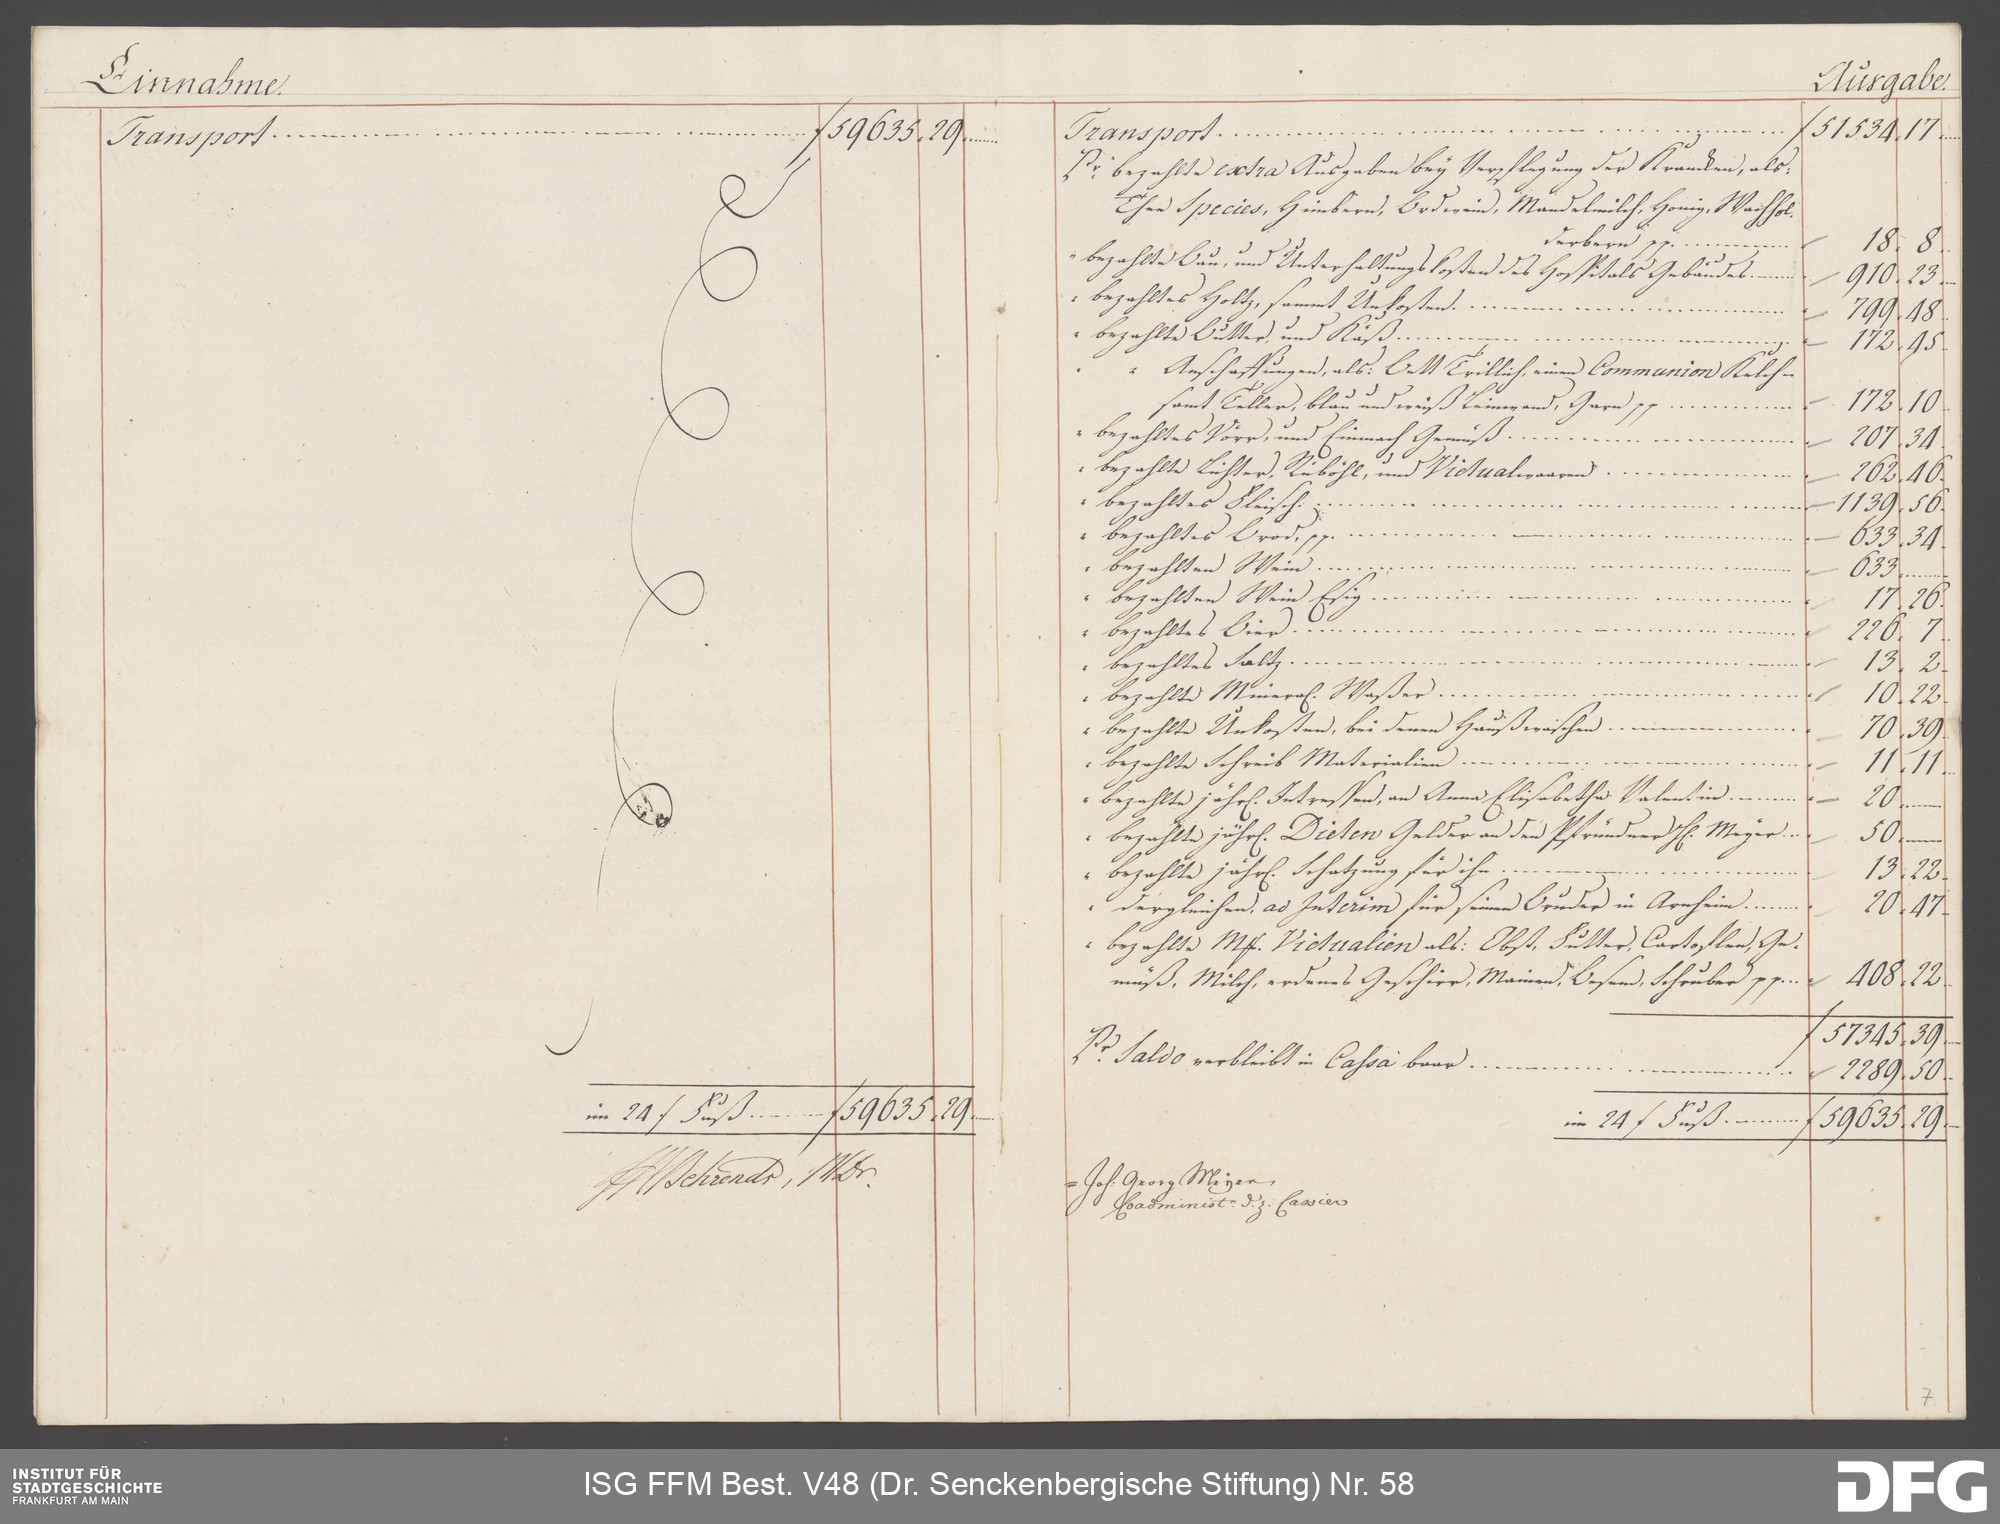 Einnahme.
Transport f 59635. 29.
im 24 f Fuß f 59635. 29.
Behrends, MDr.
Ausgabe.
Transport f 51534. 17.
Pr bezahlte extra Ausgaben bey Verpflegung der Krancken, als:
Thee Species, Himbern, Mandelmilch, Honig, Wachhol-
derbern pp. 18. 8.
" bezahlte Bau, und Unterhaltungskosten des Hospitals Gebäudes 910. 23.
" bezahltes Holtz, sammt Unkosten. 799. 48.
" bezahlte Butter, und Käß 172. 45.
" " Anschaffungen, als: Bett Trillich, einen Communion Kelch
samt Teller, blau und weiß Leinwand, Garn pp 172. 10.
" bezahltes Dörr, und Einmach Gemüß 207. 34.
" bezahlte Lichter, Rüböhl, und Victualwaaren 262. 46.
" bezahltes Fleisch. 1139. 56.
" bezahltes Brod, pp. 633. 34.
" bezahlten Wein 633.
" bezahlten Wein Esig 17. 26.
" bezahltes Bier 226. 7.
" bezahltes Saltz 13. 2.
" bezahlte Mineral. Waßer 10. 22.
" bezahlte Unkosten, bei denen Haußwaschen 70. 39.
" bezahlte Schreib Materialien 11. 11.
" bezahlte jährl. Intressen, an Anna Elisabetha Valentin 20.
" bezahlte jährl. Dieten Gelder an den Pfründner H. Meyer 50.
" bezahlte jährl. Schatzung für ihn 13. 22.
" dergleichen, ad Interim für seinen Bruder in Arnheim 20. 47.
" bezahlte Victualien als: Obst, Futter, Cartoflen, Ge-
müß, Milch, erdenes Geschirr, Besem, Schruber pp 408. 22.
f 57345. 39.
Pr Saldo verbleibt in Cassa baar 2289. 50.
im 24 f Fuß f 59635. 29.
Joh: Georg Meyer,
Coadminist. d. z. Cassier
7
INSTITUT FÜR
STADTGESCHICHTE
FRANKFURT AM MAIN
ISG FFM Best. V48 (Dr. Senckenbergische Stiftung) Nr. 58
DFG